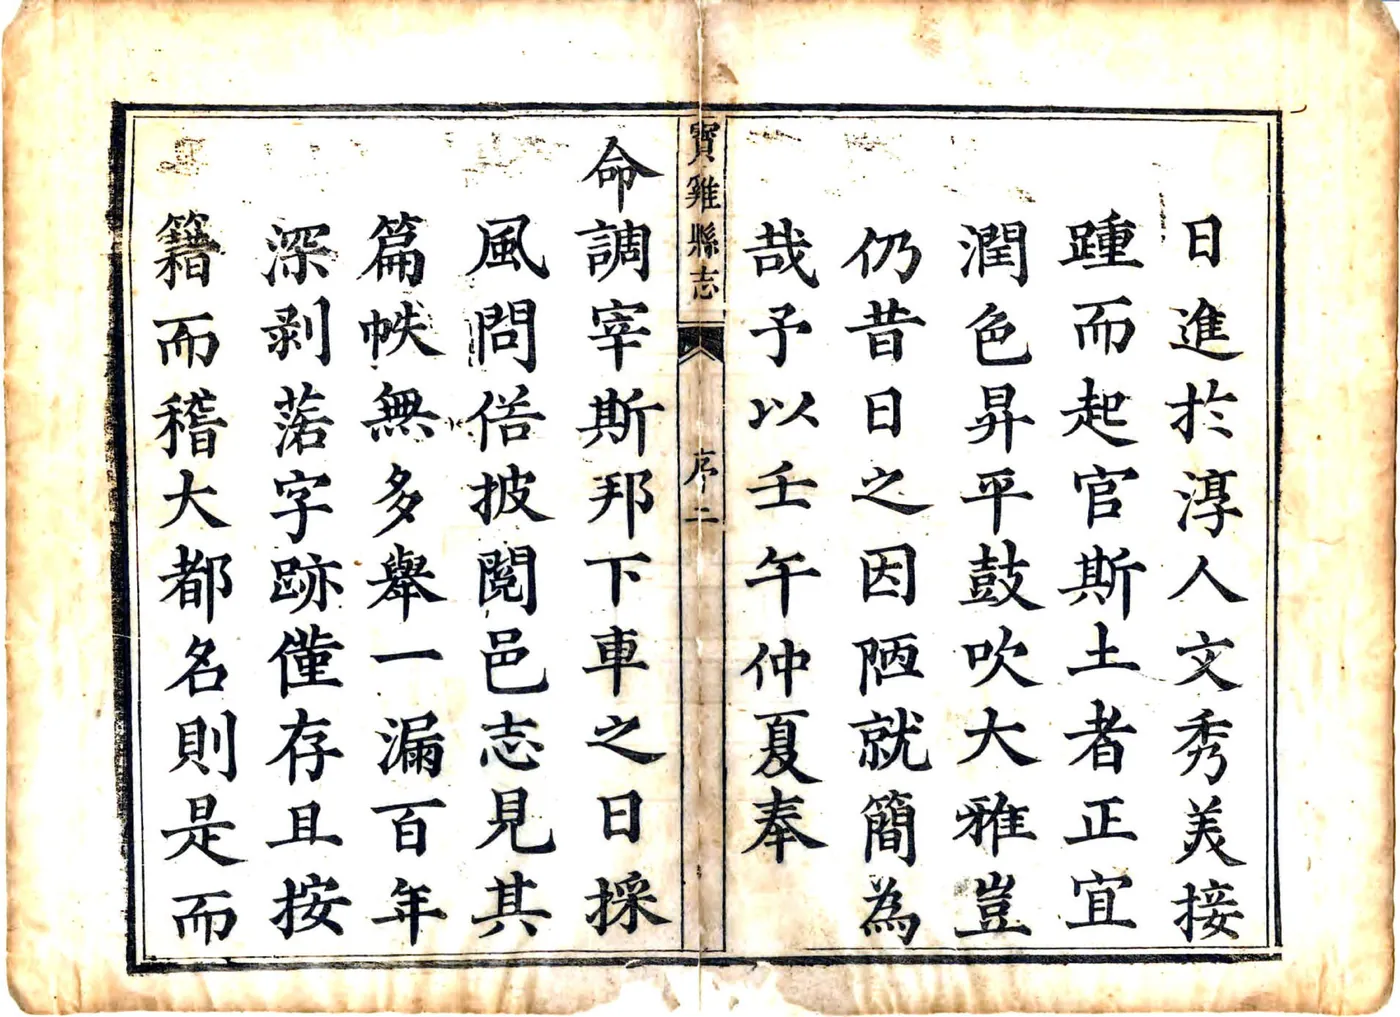 日進於淳人文秀美接
踵而起官斯土者正宜
潤色昇平鼓吹大雅豈
仍昔日之因陋就簡為
哉予以壬午仲夏奉
寶雞縣志
序二
命調宰斯邦下車之日採
風問俗披閱邑志見其
篇帙無多舉一漏百年
深剥落字跡僅存且按
籍而稽大都名則是而